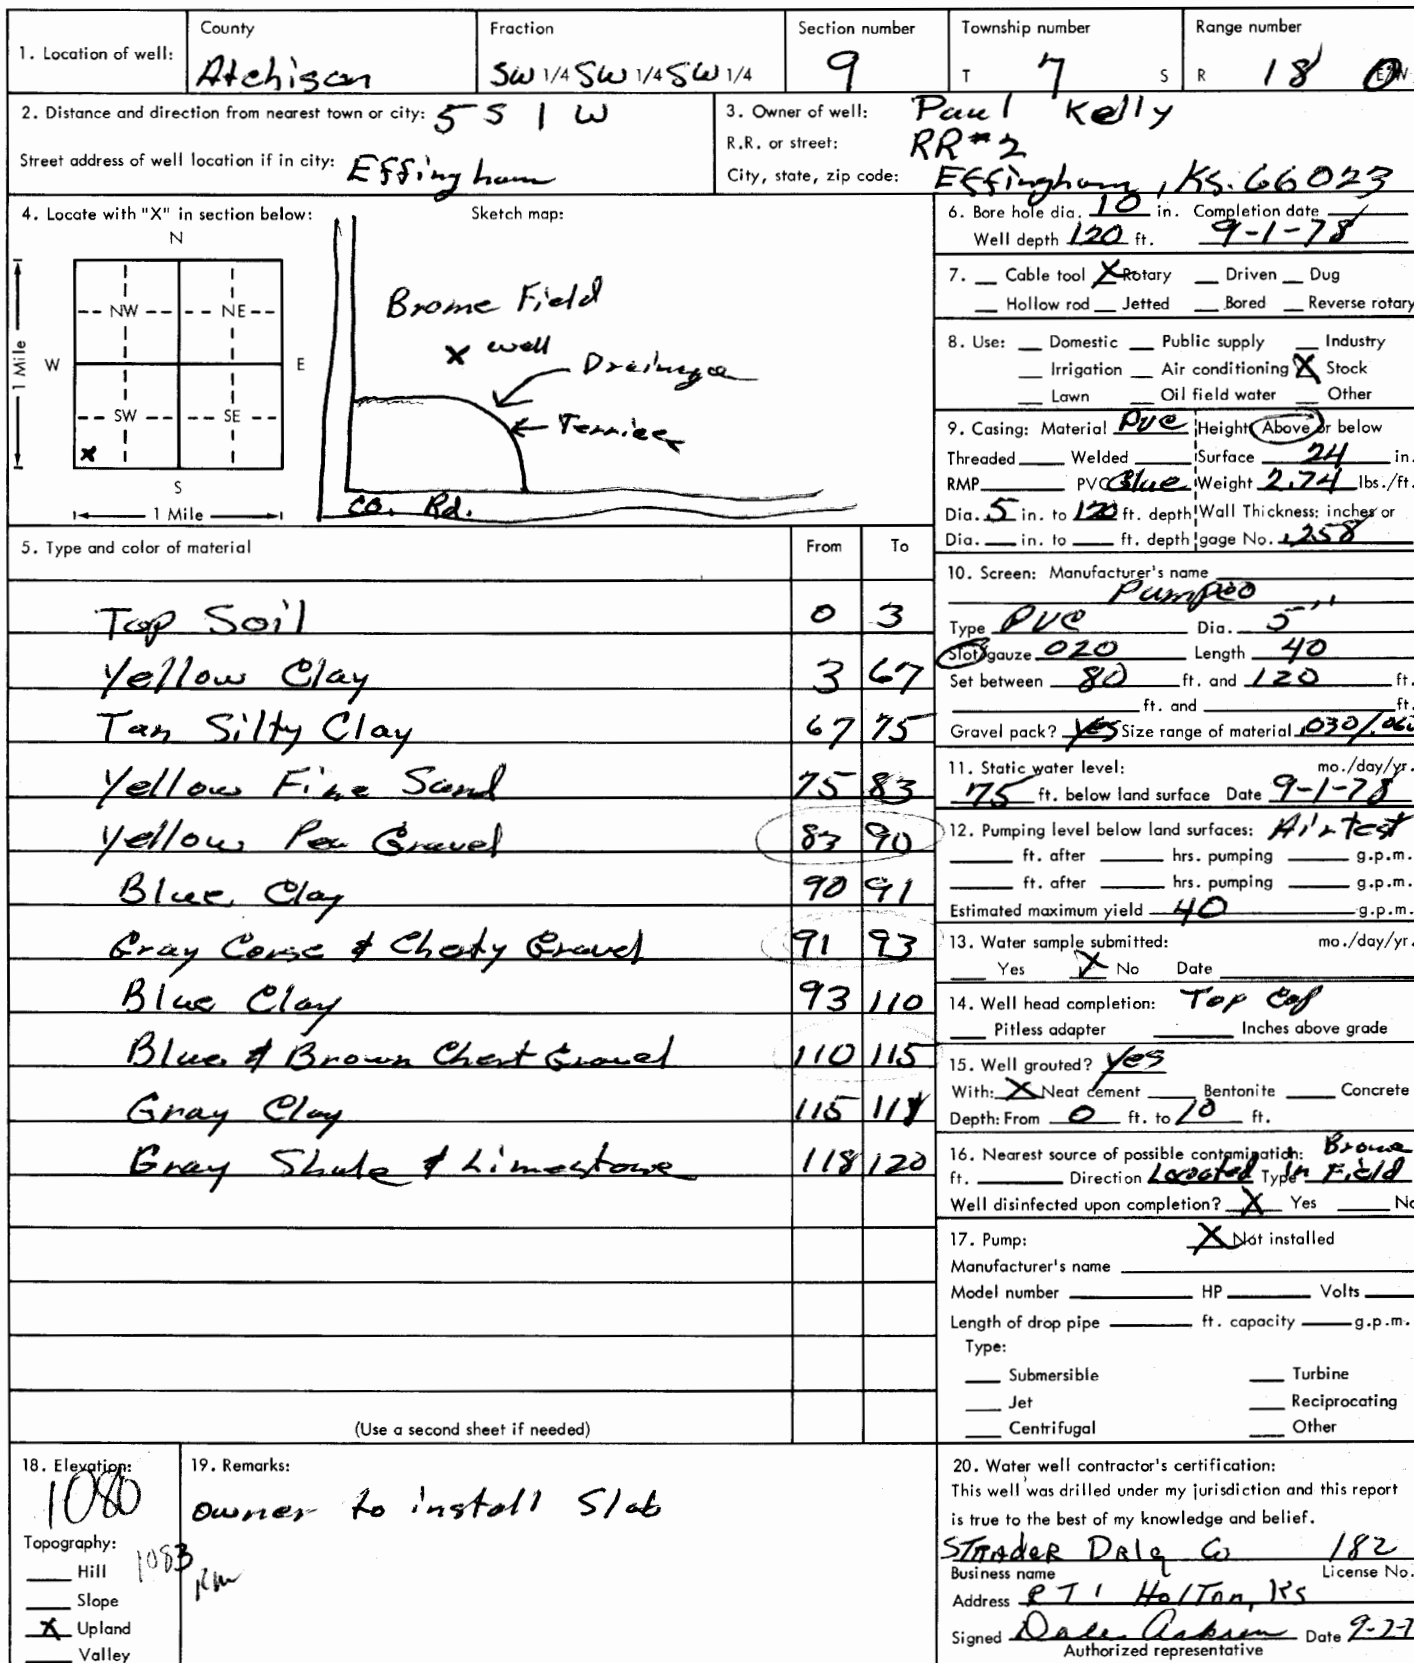 County Fraction Section number Township number Range number
1. Location of well: Atchison SW 1/4 SW 1/4 SW 1/4 9 T 7 S R 18 E/W
2. Distance and direction from nearest town or city: 5 S 1 W
Street address of well location if in city: Effingham
3. Owner of well: Paul Kelly
R.R. or street: RR#2
City, state, zip code: Effingham, Ks. 66023
4. Locate with "X" in section below: Sketch map:
N
NW NE
W E
SW SE
X
S
1 Mile
1 Mile
Brome Field
X well
Drainage
Terrice
Co. Rd.
5. Type and color of material From To
Top Soil 0 3
Yellow Clay 3 67
Tan Silty Clay 67 75
Yellow Fine Sand 75 83
Yellow Pea Gravel 83 90
Blue Clay 90 91
Gray Corse & Cherty Gravel 91 93
Blue Clay 93 110
Blue & Brown Chert Gravel 110 115
Gray Clay 115 118
Gray Shale & Limestone 118 120
(Use a second sheet if needed)
6. Bore hole dia. 10 in. Completion date
Well depth 120 ft. 9-1-78
7. Cable tool X Rotary Driven Dug
Hollow rod Jetted Bored Reverse rotary
8. Use: Domestic Public supply Industry
Irrigation Air conditioning X Stock
Lawn Oil field water Other
9. Casing: Material PVC Height: Above or below
Threaded Welded Surface 24 in.
RMP PVC Glue Weight 2.74 lbs./ft.
Dia. 5 in. to 120 ft. depth Wall Thickness: inches or
Dia. in. to ft. depth gage No. .258
10. Screen: Manufacturer's name
Type PVC Dia. 5"
Slot/gauze 020 Length 40
Set between 80 ft. and 120 ft.
ft. and ft.
Gravel pack? Yes Size range of material .030/.060
11. Static water level: mo./day/yr.
75 ft. below land surface Date 9-1-78
12. Pumping level below land surfaces: Air test
ft. after hrs. pumping g.p.m.
ft. after hrs. pumping g.p.m.
Estimated maximum yield 40 g.p.m.
13. Water sample submitted: mo./day/yr.
Yes X No Date
14. Well head completion: Top Cap
Pitless adapter Inches above grade
15. Well grouted? Yes
With: X Neat cement Bentonite Concrete
Depth: From 0 ft. to 10 ft.
16. Nearest source of possible contamination: Brome
ft. Direction Located Type In Field
Well disinfected upon completion? X Yes No
17. Pump: X Not installed
Manufacturer's name
Model number HP Volts
Length of drop pipe ft. capacity g.p.m.
Type:
Submersible Turbine
Jet Reciprocating
Centrifugal Other
18. Elevation:
1080
Topography:
1083
Hill
Slope
X Upland
Valley
19. Remarks:
owner to install Slab
20. Water well contractor's certification:
This well was drilled under my jurisdiction and this report
is true to the best of my knowledge and belief.
Strader Drlg Co 182
Business name License No.
Address RT 1 Holton, Ks
Signed Dale Date 9-2-7
Authorized representative